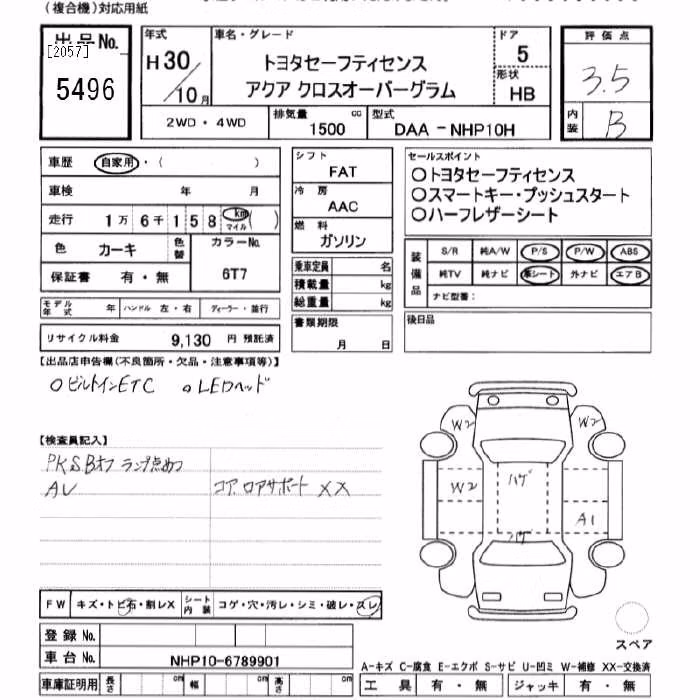 (複合機)対応用紙
出品No.
[2057]
5496
年式
H30/10月
車名・グレード
トヨタセーフティセンス
アクア クロスオーバーグラム
ドア
5
形状
HB
評価点
3.5
内装
B
2WD・4WD
排気量
1500 cc
型式
DAA-NHP10H
車歴 自家用・( )
車検 年 月
走行 1万6千158 km マイル ( )
色 カーキ 色替
カラーNo.
6T7
保証書 有・無
モデル年式 年 ハンドル 左・右 ディーラー・並行
リサイクル料金 9,130 円 預託済
シフト
FAT
冷房
AAC
燃料
ガソリン
乗車定員 名
積載量 kg
総重量 kg
書類期限
月 日
セールスポイント
○トヨタセーフティセンス
○スマートキー・プッシュスタート
○ハーフレザーシート
装備品
S/R 純A/W P/S P/W ABS
純TV 純ナビ 革シート 外ナビ エアB
ナビ型番:
後日品
【出品店申告欄(不良箇所・欠品・注意事項等)】
○ビルトインETC ○LEDヘッド
【検査員記入】
PKSBオフ ランプ点めつ
AV
コア.ロアサポート XX
W2
W2
W2
ハゲ
A1
ハゲ
FW キズ・トビ石・割レX シート内装 コゲ・穴・汚レ・シミ・破レ・スレ
登録No.
車台No. NHP10-6789901
車庫証明用 長さ cm 幅 cm 高さ cm
スペア
A-キズ C-腐食 E-エクボ S-サビ U-凹ミ W-補修 XX-交換済
工具 有・無 ジャッキ 有・無